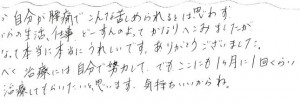 自分が腰痛でこんな苦しめられるとは思わず
の生活、仕事どーすんのよってかなりへこみましたが
なって本当に本当にうれしいです。ありがとうございました。
べく治療には自分で努力して、でもここにも1ヶ月に1回くらい
治療してもらいたいと思います。気持ちいいからね。